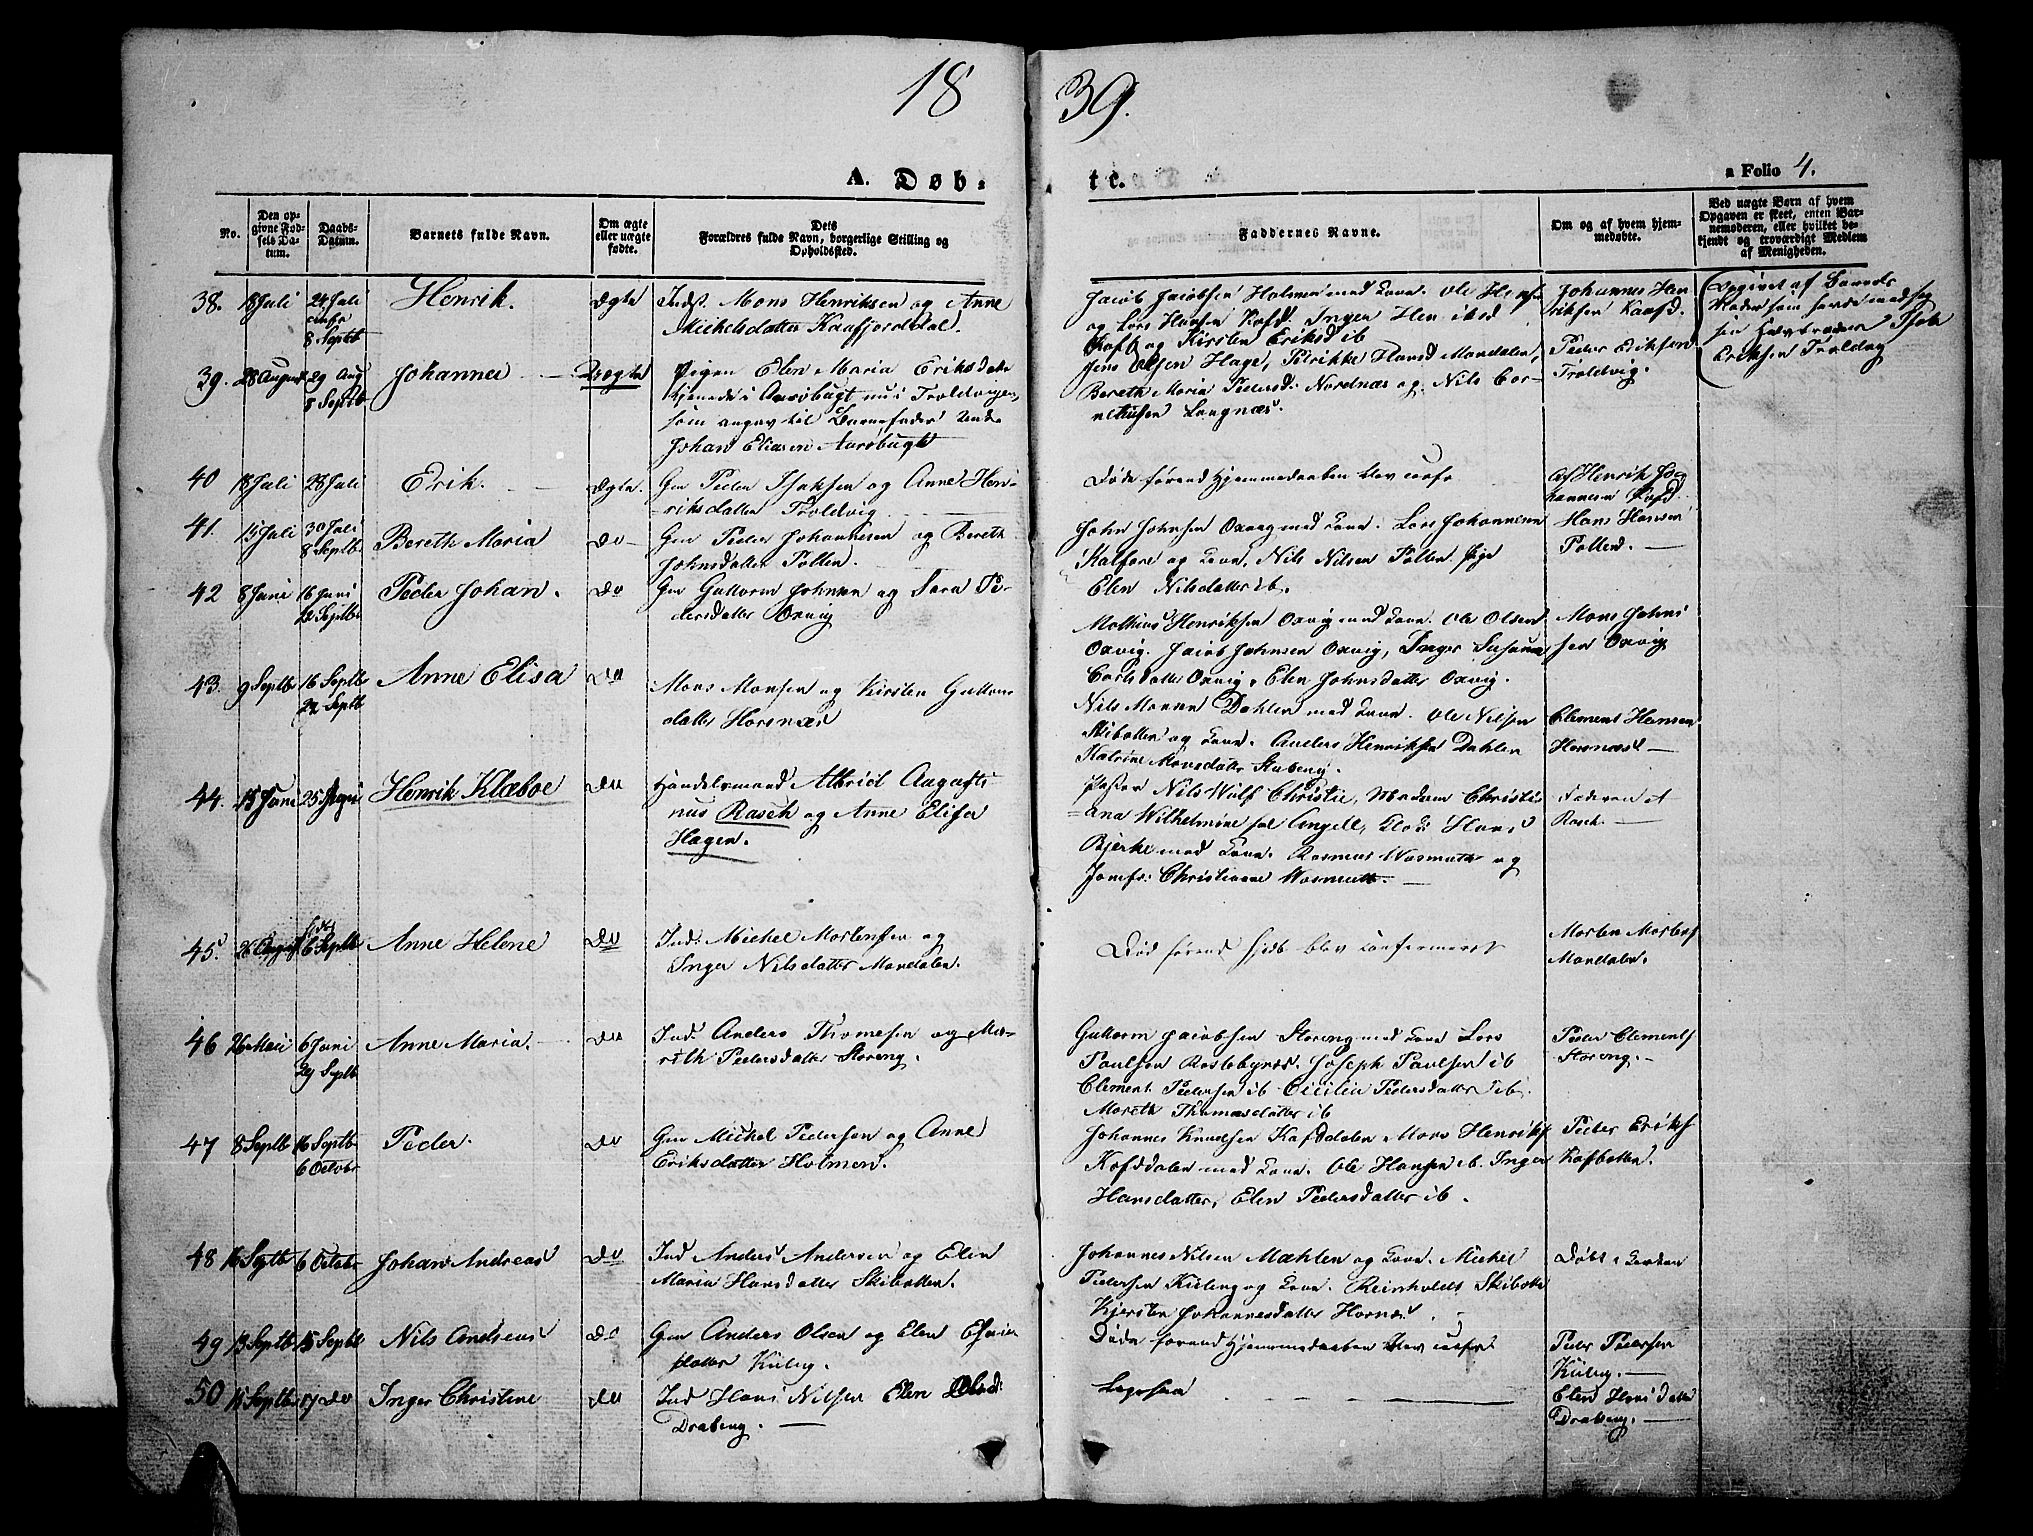 1839.
A. Døbte.
a Folio 4.
No.
Den opgivne Fødsels Datum.
Daabs-Datum.
Barnets fulde Navn.
Om ægte eller uægte fødte.
Dets Forældres fulde Navn, borgerlige Stilling og Opholdssted.
Faddernes Navne.
Om og af hvem hjemmedøbte.
Ved uægte Børn af hvem Opgaven er skeet, enten Barnemoderen, eller hvilket bekjendt og troværdigt Medlem af Menigheden.
38. 18 Juli 24 Juli Henrik. Ægte Ind. Mons Henriksen og Anne
8 Septb Michelsdatter Kaafjorddal.
Jacob Jacobsen Holmen med Kone. Ole Hans
og Lars Hansen Kafd. Inger Henriksd
Kafd og Kirsten Eriksd ib
Johannes Hen
riksen Kaafd.
39. 28 August 29 Aug Johannes Uægte Pigen Elen Maria Eriksdatter
8 Septb tjenende i Aarøbugt nu i Troldvigen,
som angav til Barnefader Unde
Johan Eliasen Aarøbugt
Jens Olsen Hage, Perikke Hansd Mandalen,
Bereth Maria Pedersd. Nordnæs og Nils Cor
neliusen Langnæs.
Peder Eriksen
Troldvig.
Opgivet af Barnets
Moder som havde med sig
sin Halvbroder Isak
Eriksen Troldvig
40 18 Juli 28 Juli Erik. Ægte. Gm Peder Isaksen og Anne Hen-
riksdatter Troldvig
Døde førend Hjemmedaaben blev conf.
Af Henrik Jo
hannesen Kafd.
41. 15 Juli 30 Juli Bereth Maria do Gm Peder Johannesen og Bereth
8 Septb Johnsdatter Pollen.
John Johnsen Oxvig med Kone. Lars Johannesen
Kalfore og Kone, Nils Nilsen Pollen Pige
Elen Nilsdatter ib.
Hans Hansen
Pollen.
42 8 Juni 16 Juni Peder Johan. do Gm Guttorm Johnsen og Sara Pe-
22 Septb dersdatter Oxvig
Mathias Henriksen Oxvig med Kone. Ole Olsen
Oxvig. Jacob Johnsen Oxvig, Inger Susanne
Carlsdatter Oxvig, Elen Johnsdatter Oxvig.
Mons John
sen Oxvig
43. 9 Septb 16 Septb Anne Elisa do Mons Monsen og Kirsten Guttorms
22 Septb datter Horsnæs
Nils Monsen Dahlen med Kone. Ole Nilsen
Skibotten og Kone. Anders Henriksen Dahlen
Katrine Monsdatter
Clement Hansen
Horsnæs
44. 15 Juni 25 Juni Henrik Klæboe do Handelsmand Albrict Augusti
nus Rasch og Anne Elisa
Hagen.
Pastor Nils Wulf Christie, Madam Christi
ana Wilhelmine fød Angell, Hans
Bjerke med Kone. Rasmus Wasmuth og
Jomf: Christianne Wasmuth.
Faderen A
Rasch.
45. 26 August 6 Septb Anne Helene do Ind. Michel Mortensen og
Inger Nilsdatter Mandalen.
Død førend Hjdb blev confirmeret
Morten Mortens
Mandalen.
46 26 Mai 6 Juni Anne Maria. do Ind. Anders Thomesen og Ma-
29 Septb rith Pedersdatter Storeng.
Guttorm Jacobsen Storeng med Kone Lars
Paulsen Rasteby. Joseph Paulsen ib
Clement Pedersen ib Cicilia Pedersdatter ib.
Mareth Thomasdatter ib
Peder Clements
Storeng.
47 8 Septb 16 Septb Peder. do Gm Michel Pedersen og Anne
6 October Eriksdatter Holmen.
Johannes Knudsen Kafddalen Mons Henriks
Kafddalen med Kone. Ole Hansen ib. Inger
Hansdatter, Elen Pedersdatter ib.
Peder Eriks
Kafbotten.
48 16 Septb 6 Octobr Johan Andreas do Ind Anders Andersen og Elen
Maria Hansdatter Skibotten.
Johannes Nilsen Mæhlen og Kone. Michel
Pedersen Kileng og Kone. Reinholdt Skibotn
Kjersten Johannesdatter Hornæs.
Døbt i Kirken
49 13 Septb 15 Septb Nils Andreas do Gm Anders Olsen og Elen
datter Kileng.
Døde førend Hjemmedaaben blev conf.
Peder Pedersen
Kileng.
50 15 Septb 17 do Inger Christine do Ind Hans Nilsen Elen Olsd:
Draberg.
Ligesaa
Elen Hansdatter
Draberg.